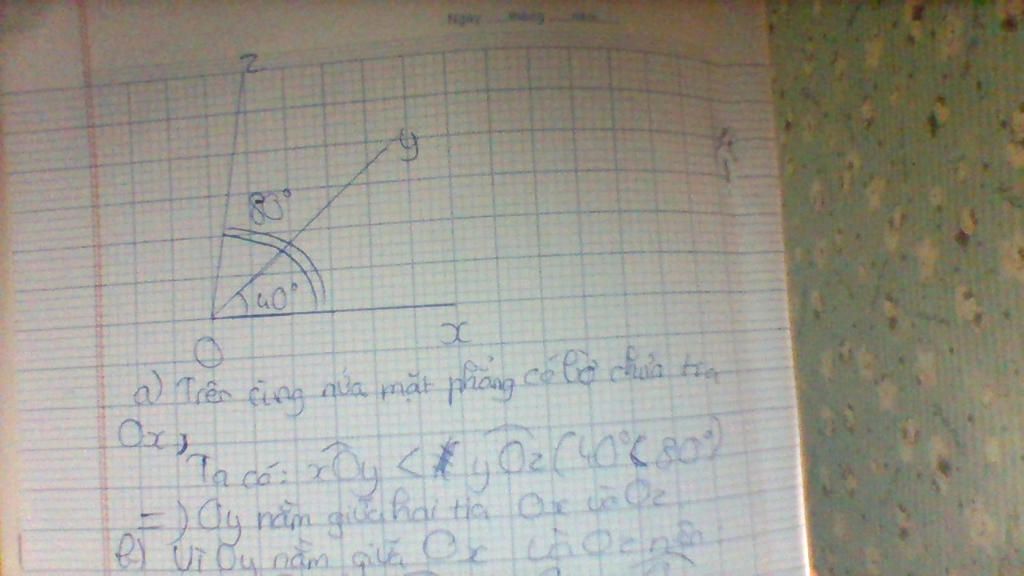 Ngày tháng năm
z
y
80°
40°
x
O
a) Trên cùng nửa mặt phẳng có bờ chứa tia
Ox,
Ta có: xOy < yOz (40° < 80°)
=) Oy nằm giữa hai tia Ox và Oz
b) Vì Oy nằm giữa Ox và Oz nên